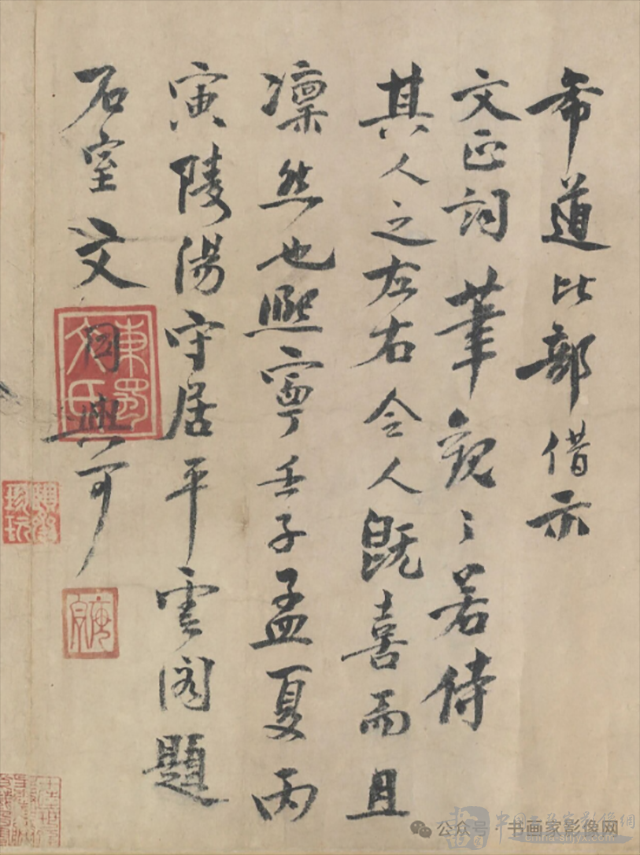 希道比部借示
文正詞筆觀〻若侍
其人之左右令人既喜而且
凜然也熈寧壬子孟夏丙
寅陵陽守居平雲閣題
石室文同與可
東蜀文氏
公众号 · 书画家影像网